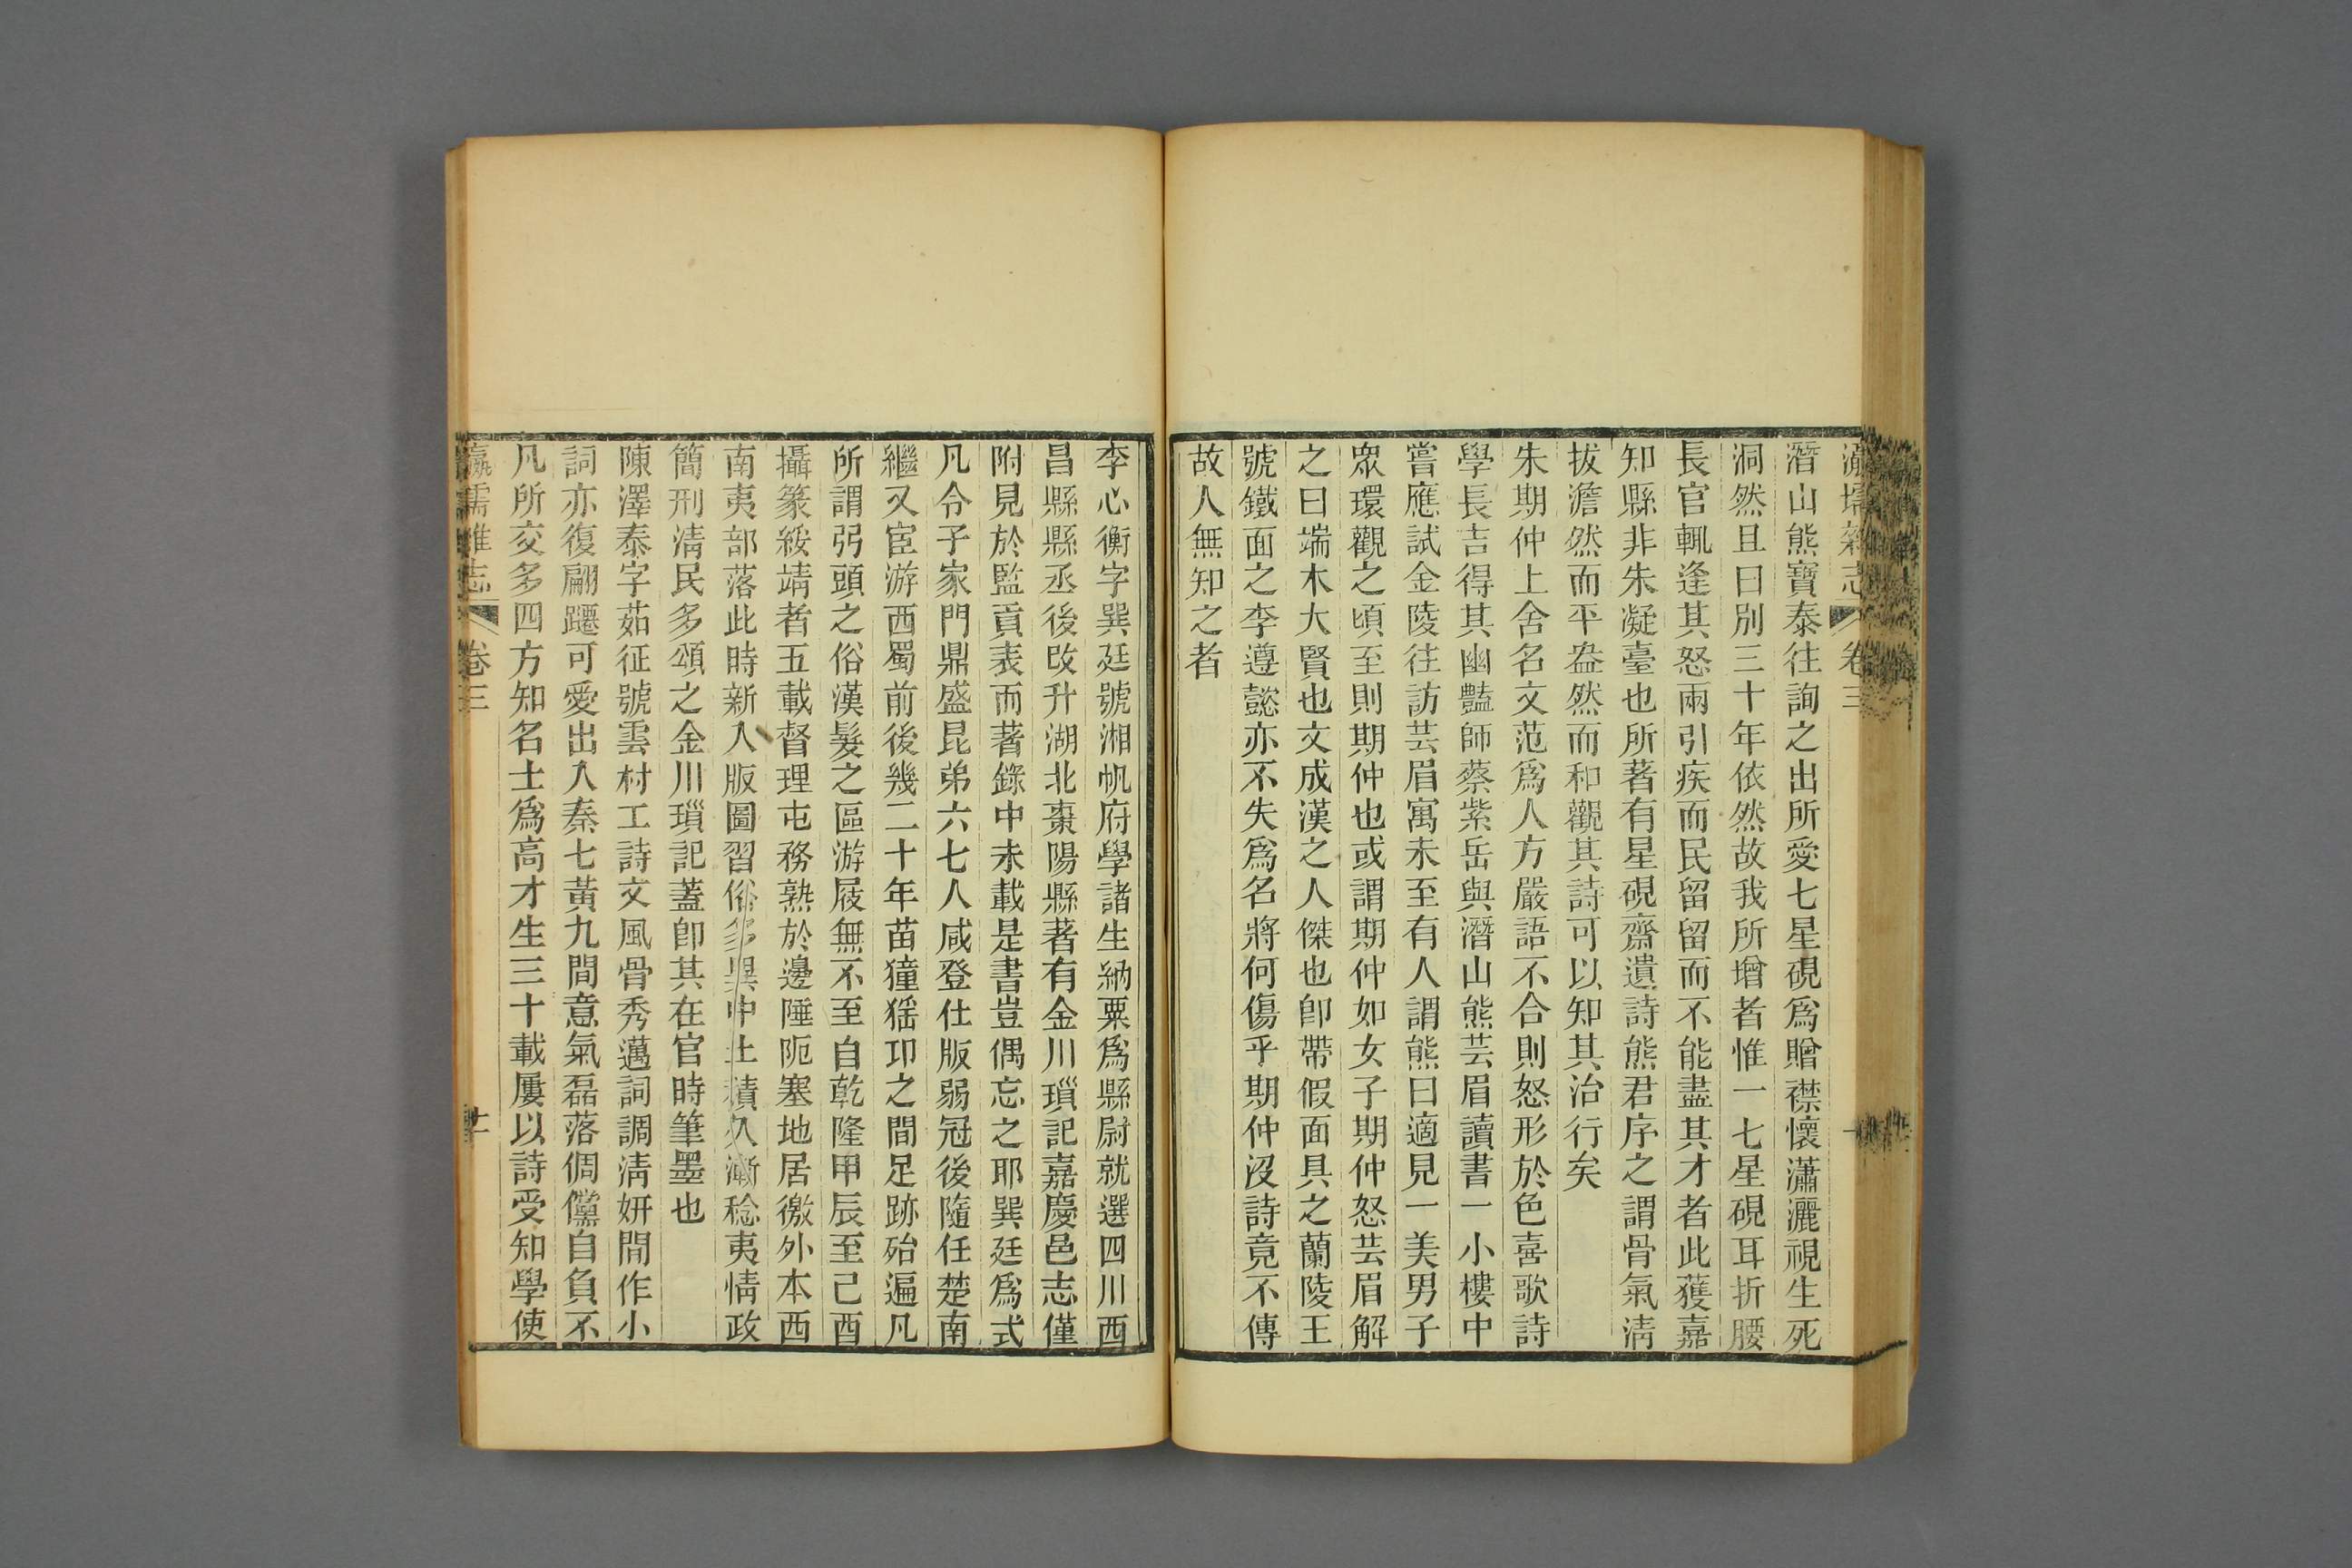 瀛壖雜志 卷三
潛山熊寶泰往詢之出所愛七星硯爲贈襟懷瀟灑視生死
洞然且曰別三十年依然故我所增者惟一七星硯耳折腰
長官輒逢其怒兩引疾而民留留而不能盡其才者此獲嘉
知縣非朱凝臺也所著有星硯齋遺詩熊君序之謂骨氣淸
拔澹然而平盎然而和觀其詩可以知其治行矣
朱期仲上舍名文范爲人方嚴語不合則怒形於色喜歌詩
學長吉得其幽豔師蔡紫岳與潛山熊芸眉讀書一小樓中
嘗應試金陵往訪芸眉寓未至有人謂熊曰適見一美男子
眾環觀之頃至則期仲也或謂期仲如女子期仲怒芸眉解
之曰端木大賢也文成漢之人傑也卽帶假面具之蘭陵王
號鐵面之李遵懿亦不失爲名將何傷乎期仲沒詩竟不傳
故人無知之者
李心衡字巽廷號湘帆府學諸生納粟爲縣尉就選四川西
昌縣縣丞後改升湖北棗陽縣著有金川瑣記嘉慶邑志僅
附見於監貢表而著錄中未載是書豈偶忘之耶巽廷爲式
凡令子家門鼎盛昆弟六七人咸登仕版弱冠後隨任楚南
繼又宦游西蜀前後幾二十年苗獞猺卭之間足跡殆遍凡
所謂弜頭之俗漢髮之區游屐無不至自乾隆甲辰至己酉
攝篆綏靖者五載督理屯務熟於邊陲阨塞地居徼外本西
南夷部落此時新入版圖習俗多異中土積久漸稔夷情政
簡刑淸民多頌之金川瑣記蓋卽其在官時筆墨也
陳澤泰字茹征號雲村工詩文風骨秀邁詞調淸妍閒作小
詞亦復翩躚可愛出入秦七黃九間意氣磊落倜儻自負不
凡所交多四方知名士爲高才生三十載屢以詩受知學使
瀛壖雜志 卷三 十一